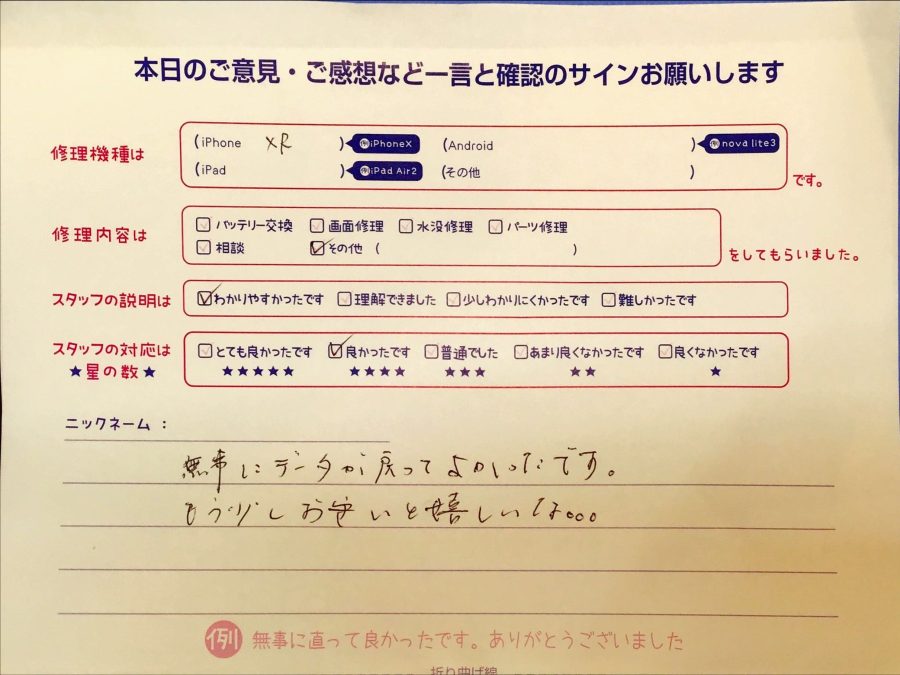 本日のご意見・ご感想など一言と確認のサインお願いします
修理機種は
(iPhone XR ) 例iPhoneX (Android ) 例nova lite3
(iPad ) 例iPad Air2 (その他 )
です。
修理内容は
バッテリー交換 画面修理 水没修理 パーツ修理
相談 その他 ( )
をしてもらいました。
スタッフの説明は
わかりやすかったです 理解できました 少しわかりにくかったです 難しかったです
スタッフの対応は
★星の数★
とても良かったです 良かったです 普通でした あまり良くなかったです 良くなかったです
★★★★★ ★★★★ ★★★ ★★ ★
ニックネーム：
無事にデータが戻ってよかったです。
もう少しお安いと嬉しいな。。。
例 無事に直って良かったです。ありがとうございました
折り曲げ線